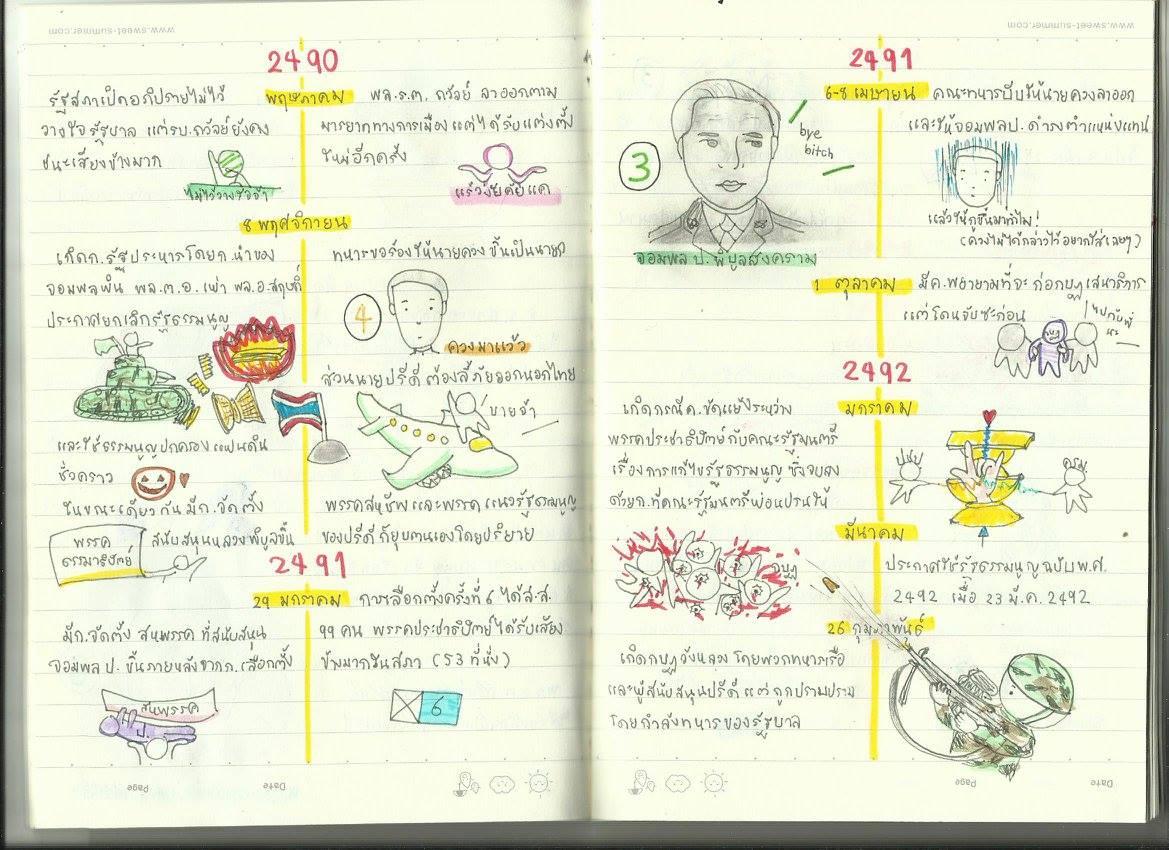 www.sweet-summer.com
2490
พฤษภาคม
รัฐสภาเปิดอภิปรายไม่ไว้
วางใจรัฐบาล แต่รบ.ถวัลย์ยังคง
ชนะเสียงข้างมาก
ไม่ไว้วางใจจ้า
พล.ร.ต. ถวัลย์ ลาออกตาม
มารยาททางการเมือง แต่ได้รับแต่งตั้ง
ใหม่อีกครั้ง
8 พฤศจิกายน
เกิดก.รัฐประหารโดยก.นำของ
จอมพลผิน พล.ต.อ. เผ่า พล.อ.สฤษดิ์
ประกาศยกเลิกรัฐธรรมนูญ
และใช้ธรรมนูญปกครองแผ่นดิน
ชั่วคราว
ในขณะเดียวกัน มีก.จัดตั้ง
พรรค
ธรรมาธิปัตย์
สนับสนุนหลวงพิบูลขึ้น
ทหารขอร้องให้นายควง ขึ้นเป็นนายก
4
ควงมาแว้ว
ส่วนนายปรีดี ต้องลี้ภัยออกนอกไทย
บายจ้า
พรรคสหชีพ และพรรค แนวรัฐธรรมนูญ
ของปรีดี ก็ยุบตนเองโดยปริยาย
2491
29 มกราคม
การเลือกตั้งครั้งที่ 6 ได้ส.ส.
99 คน พรรคประชาธิปัตย์ได้รับเสียง
ข้างมากในสภา (53 ที่นั่ง)
6
มีก.จัดตั้ง สหพรรค ที่สนับสนุน
จอมพล ป. ขึ้นภายหลังจากก.เลือกตั้ง
สหพรรค
ป.
Page
Date
www.sweet-summer.com
2491
3
bye
bitch
จอมพล ป. พิบูลสงคราม
6-8 เมษายน
คณะทหารบีบให้นายควงลาออก
และให้จอมพลป. ดำรงตำแหน่งแทน
แล้วให้กูขึ้นมาทำไม!
(ควงไม่ได้กล่าวไว้ อยากใส่เฉยๆ)
1 ตุลาคม
มีค.พยายามที่จะ ก่อกบฏเสนาธิการ
แต่โดนจับซะก่อน
ไปกับพี่
นะ
2492
มกราคม
เกิดกรณีค.ขัดแย้งระหว่าง
พรรคประชาธิปัตย์กับคณะรัฐมนตรี
เรื่องการแก้ไขรัฐธรรมนูญ ซึ่งจบลง
ด้วยก.ที่คณะรัฐมนตรีผ่อนปรนให้
ปชป
ครม.
มีนาคม
ประกาศใช้รัฐธรรมนูญฉบับพ.ศ.
2492 เมื่อ 23 มี.ค. 2492
กบฏ
26 กุมภาพันธ์
เกิดกบฏวังหลวง โดยพวกทหารเรือ
และผู้สนับสนุนปรีดี แต่ถูกปราบปราม
โดยกำลังทหารของรัฐบาล
Page
Date